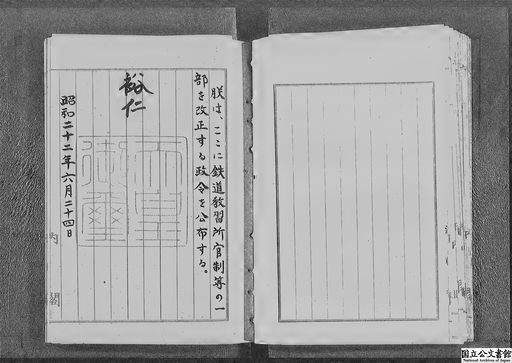 朕は、ここに鉄道教習所官制等の一
部を改正する政令を公布する。
裕仁
天皇
御璽
昭和二十二年六月二十四日
内閣
国立公文書館
National Archives of Japan